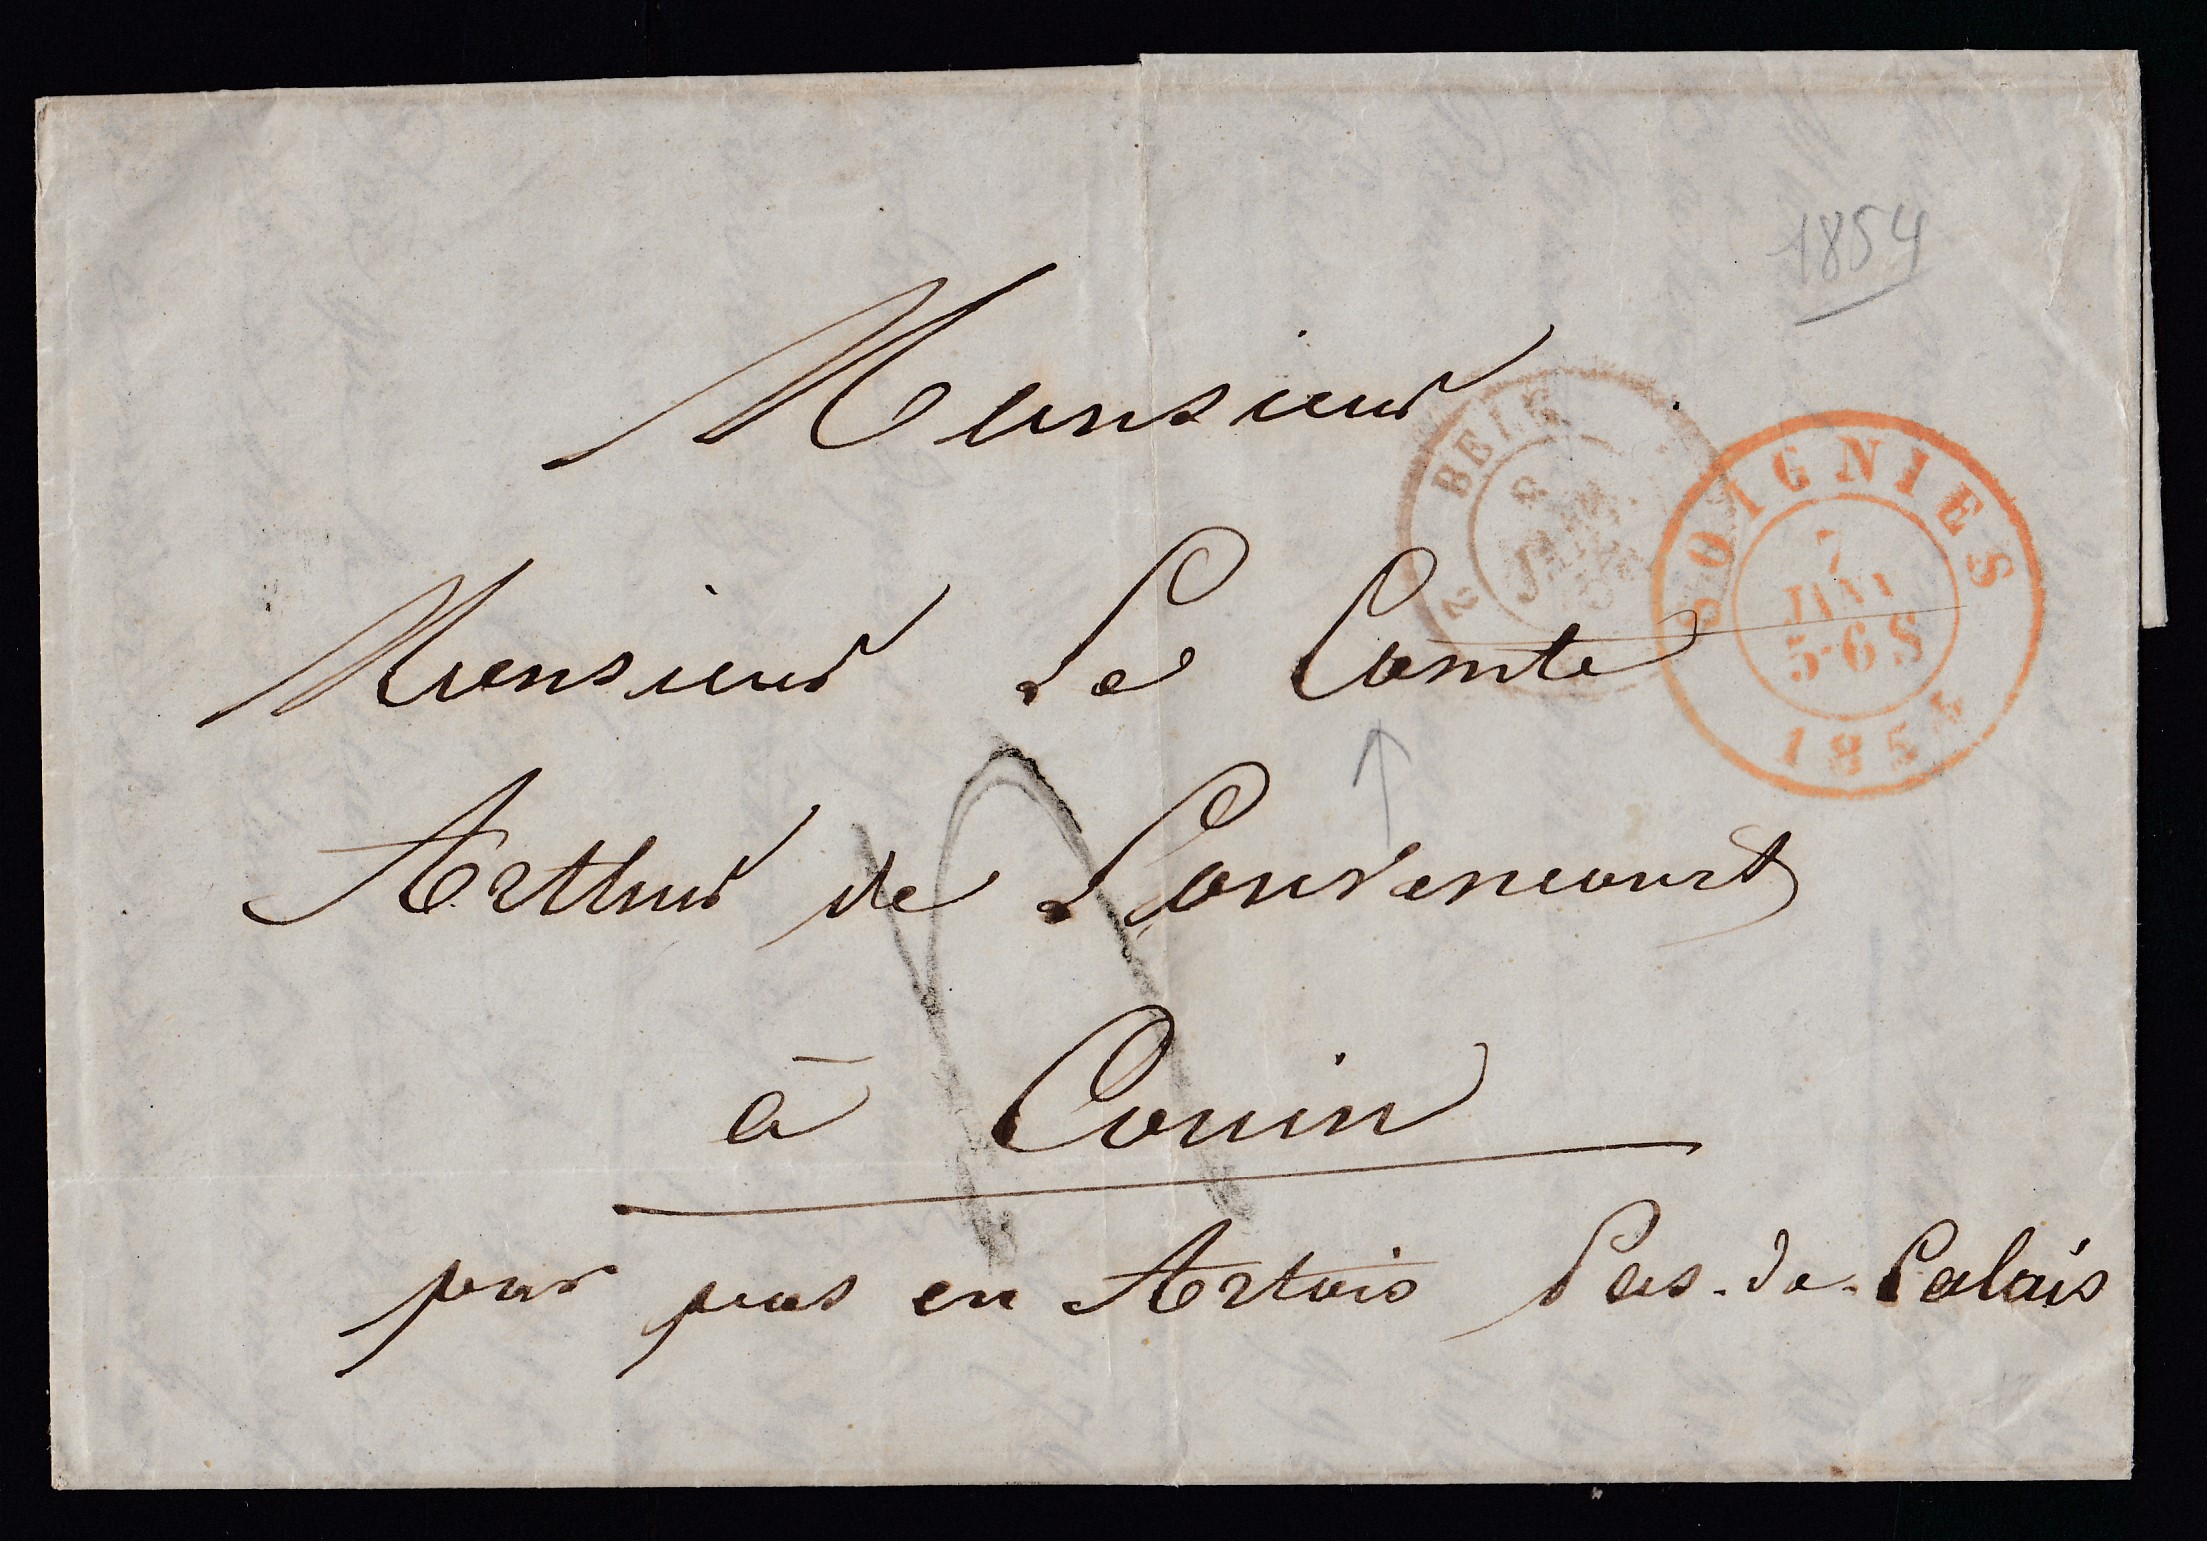 1854
Monsieur
BELG.
2
8
JANV.
54
SOIGNIES
7
JANV
5-6 S
1854
Monsieur Le Comte
Arthur de Louvencourt
à Couin
par pas en Artois Pas-de-Calais